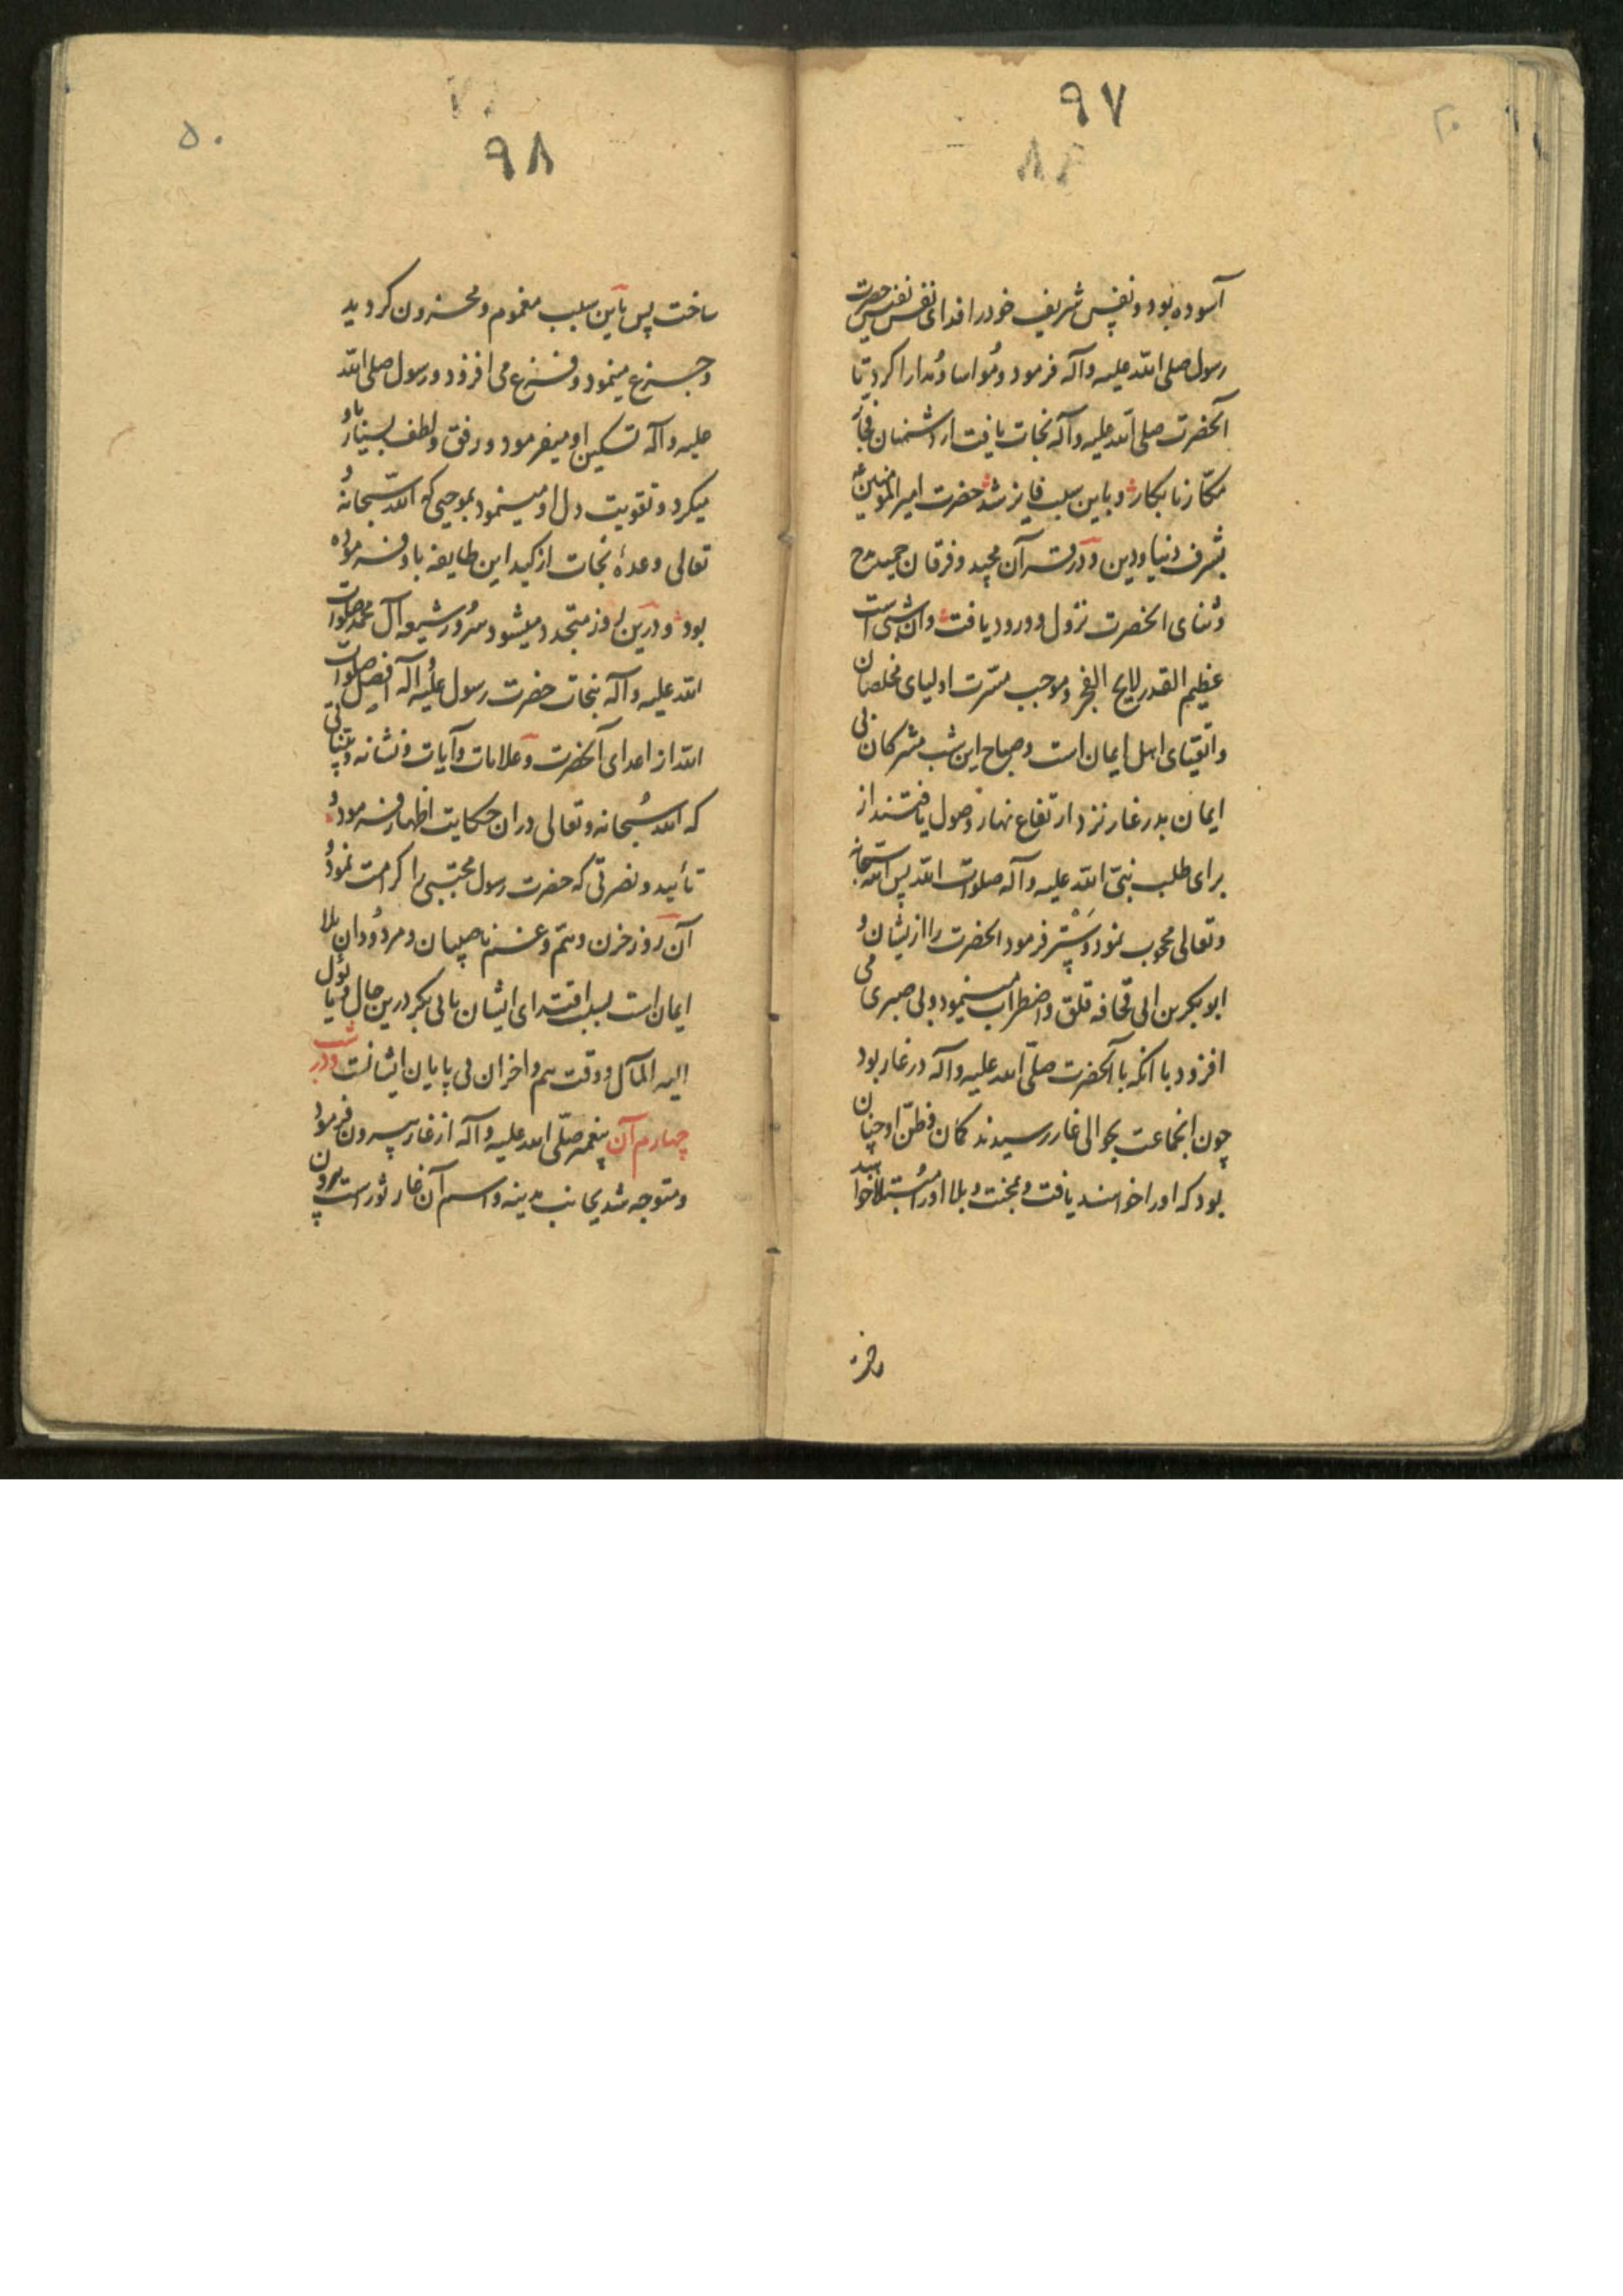 ۹۷
آسوده بود و نفس شریف خود را فدای نفس نفیس حضرت
رسول صلی الله علیه و آله فرمود و مُواسا و مُدارا کرد تا
آنحضرت صلی الله علیه و آله نجات یافت از دشمنان فجّار
مکّار نابکار و باین سبب فایز شد حضرت امیرالمؤمنین ع
بشرف دنیا و دین و در قرآن مجید و فرقان حمید مدح
و ثنای انحضرت نزول و ورود یافت و آن شبی است
عظیم القدر لایح الفخر و موجب مسرت اولیای مخلصان
و اتقیای اهل ایمان است و صباح این شب مشرکان بی
ایمان بدر غار نزد ارتفاع نهار وصول یافتند از
برای طلب نبیّ الله علیه و آله صلوات الله پس الله سبحانه
و تعالی محجوب نمود و مستتر فرمود انحضرت را از یشان و
ابو بکر بن ابی قحافه قلق و اضطراب مینمود و بی صبری می
افزود با انکه با آنحضرت صلّی الله علیه و آله در غار بود
چون انجماعت بحوالی غار رسیدند کمان و ظنّ او چنان
بود که او را خواهند یافت و بمحنت و بلا او را مُبتلا خواهند
۵۰
۹۸
ساخت پس باین سبب مغموم و محزون کردید
و جزع مینمود و فزع می افزود و رسول صلی الله
علیه و آله تسکین او میفرمود و رفق و لطف بسیار باو
میکرد و تقویت دل او مینمود بموجبی که الله سبحانه و
تعالی وعدهٔ نجات از کید این طایفه باو فرموده
بود و درین روز متجدد میشود سُرور شیعه آل محمد صلوات
الله علیه و آله بنجات حضرت رسول علیه و آله افضل صلوات
الله از اعدای آنحضرت و علامات و آیات و نشانه و بیّناتی
که الله سُبحانه و تعالی دران حکایت اظهار فرموده و
تأیید و نصرتی که حضرت رسول مجتبی را کرامت نمود و
آن روز حزن و همّ و غم ناصبیان و مردُودان بلا
ایمان است بسبب اقتدای ایشان بابی بکر درین حال و یا یؤل
الیه المآل و وقت هم و احزان بی پایان ایشانت و در شب
چهارم آن پیغمبر صلّی الله علیه و آله از غار بیرون فرمود
و متوجه شد بجانب مدینه و اسم آن غار ثور است بیرون